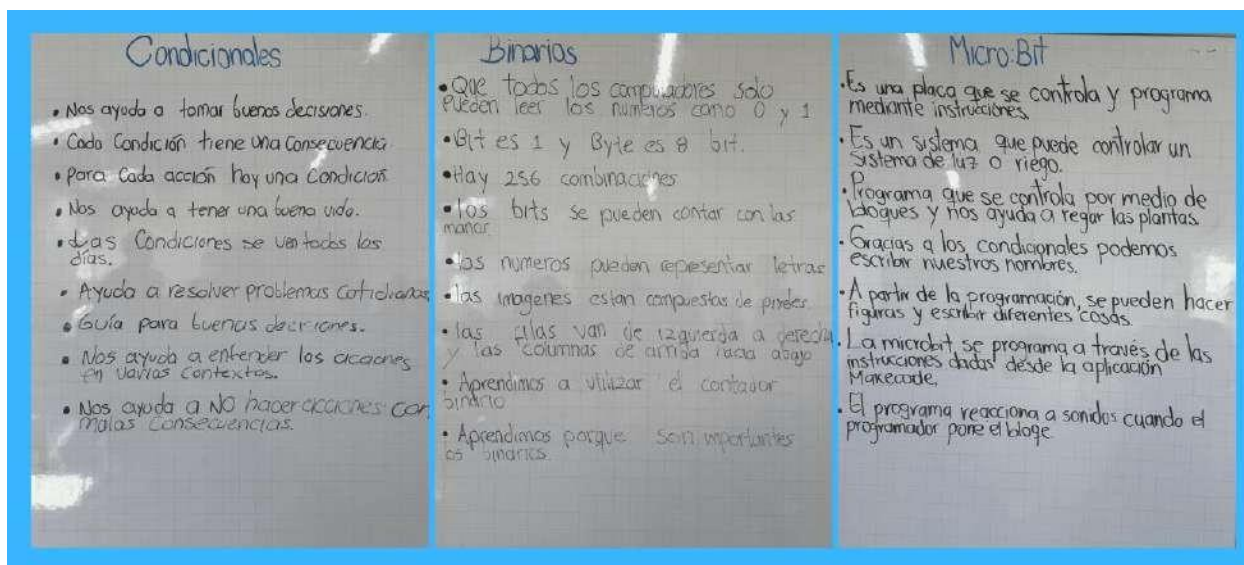 Condicionales
• Nos ayuda a tomar buenas decisiones.
• Cada Condición tiene una consecuencia
• Para Cada acción hay una Condición
• Nos ayuda a tener una buena vida.
• Las Condiciones se ven todos los
días.
• Ayuda a resolver problemas cotidianos
• Guía para buenas decisiones.
• Nos ayuda a entender las acciones
en varias contextos.
• Nos ayuda a NO hacer acciones con
malas consecuencias.
Binarios
• Que todos los computadores solo
pueden leer los numeros como 0 y 1
• Bit es 1 y Byte es 8 bit.
• Hay 256 combinaciones
• los bits se pueden contar con las
manos
• los numeros pueden representar letras
• las imagenes estan compuestas de pixeles
• las filas van de izquierda a derecha
y las columnas de arriba hacia abajo
• Aprendimos a utilizar el contador
binario
• Aprendimos porque son importantes
os binarios
Micro:Bit
• Es una placa que se controla y programa
mediante instrucciones
• Es un sistema que puede controlar un
sistema de luz o riego.
• Programa que se controla por medio de
bloques y nos ayuda a regar las plantas
• Gracias a los condicionales podemos
escribir nuestros nombres.
• A partir de la programación, se pueden hacer
figuras y escribir diferentes cosas
• La microbit, se programa a través de las
instrucciones dadas desde la aplicación
Makecode.
• El programa reacciona a sonidos cuando el
programador pone el bloge